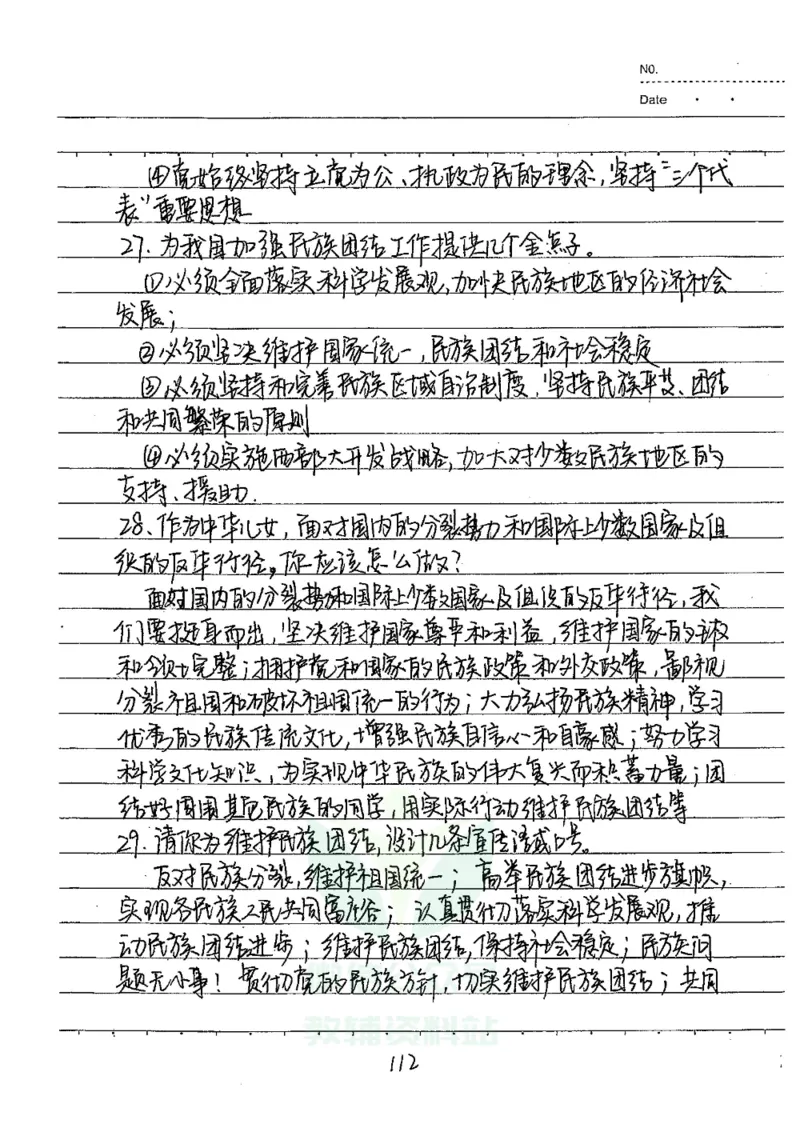 NO.
Date
④党始终坚持立党为公、执政为民的理念,坚持“三个代
表”重要思想
27. 为我国加强民族团结工作提供几个金点子。
①必须全面落实科学发展观,加快民族地区的经济社会
发展;
②必须坚决维护国家统一,民族团结和社会稳定
③必须坚持和完善民族区域自治制度,坚持民族平等、团结
和共同繁荣的原则
④必须实施西部大开发战略,加大对少数民族地区的
支持、援助.
28、作为中华儿女,面对国内的分裂势力和国际上少数国家及组
织的反华行径,你应该怎么做?
面对国内的分裂势力和国际上少数国家及组织的反华行径,我
们要挺身而出,坚决维护国家尊严和利益,维护国家的主权
和领土完整;拥护党和国家的民族政策和外交政策,鄙视
分裂祖国和破坏祖国统一的行为;大力弘扬民族精神,学习
优秀的民族传统文化,增强民族自信心和自豪感;努力学习
科学文化知识,为实现中华民族的伟大复兴而积蓄力量;团
结好周围其它民族的同学,用实际行动维护民族团结等
29. 请你为维护民族团结,设计几条宣传语或口号。
反对民族分裂,维护祖国统一;高举民族团结进步旗帜,
实现各民族人民共同富裕;认真贯彻落实科学发展观,推
动民族团结进步;维护民族团结,保持社会稳定;民族问
题无小事!贯彻党的民族方针,切实维护民族团结;共同
教辅资料站
112